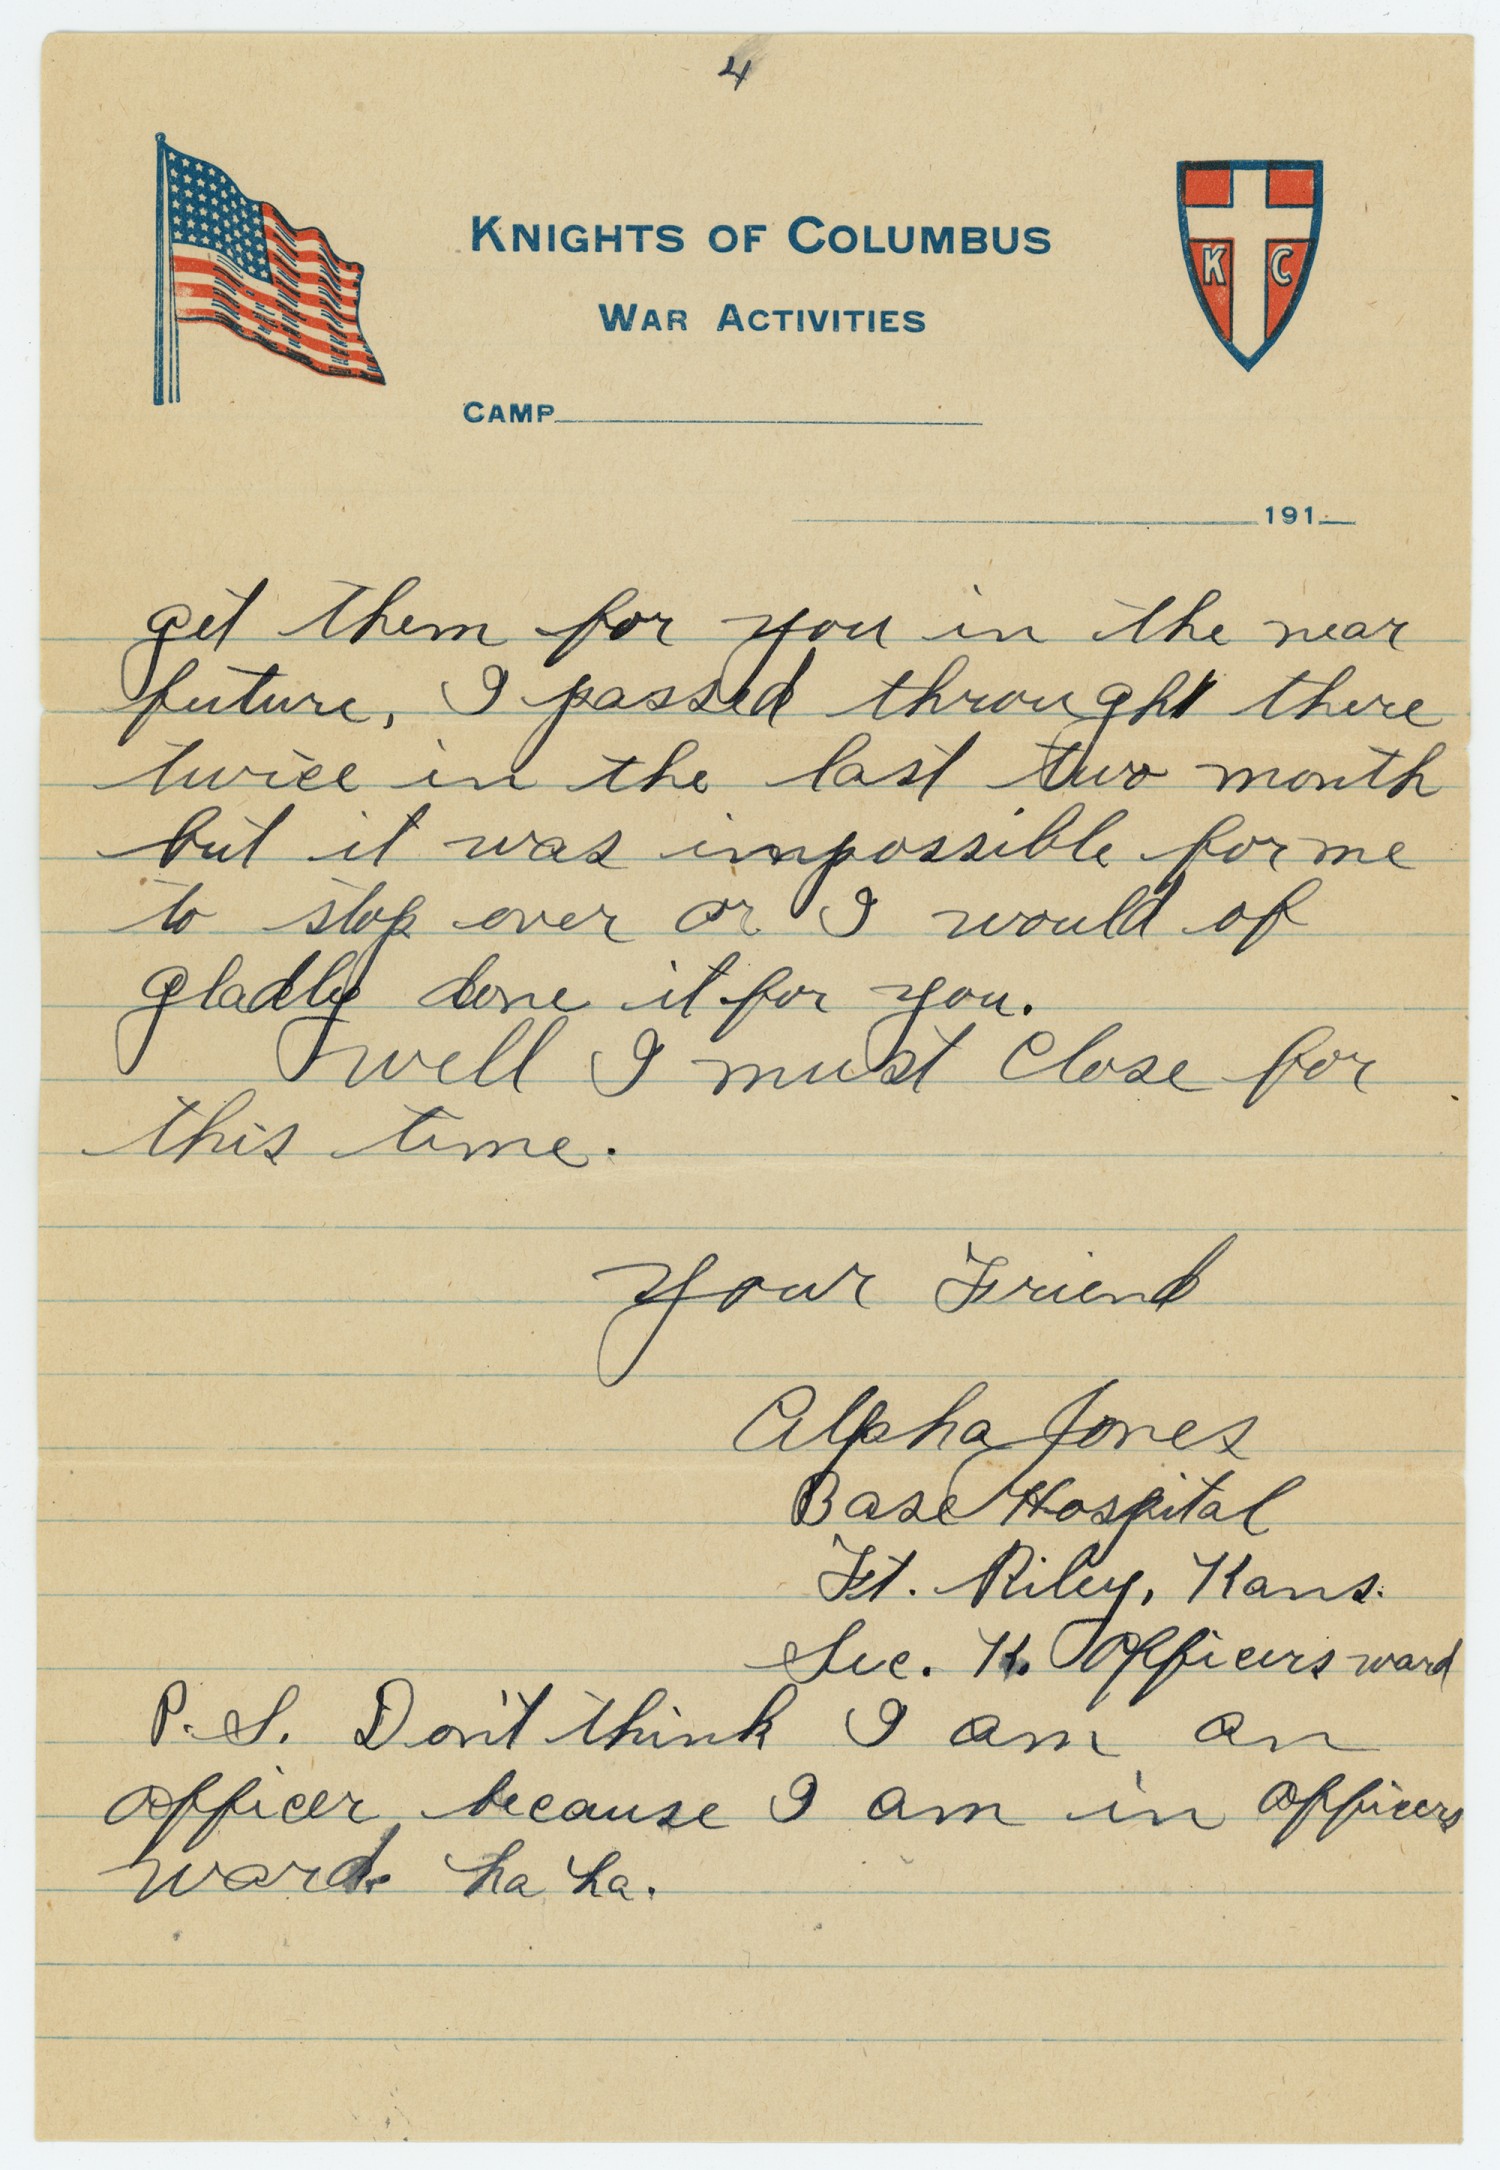 4
KNIGHTS OF COLUMBUS
WAR ACTIVITIES
K C
CAMP
191
get them for you in the near
future, I passed throught there
twice in the last two month
but it was impossible for me
to stop over or I would of
gladly done it for you.
Well I must Close for
this time.
Your Friend
Alpha Jones
Base Hospital
Ft. Riley, Kans.
Sec. K. Officers ward
P.S. Don't think I am an
officer because I am in officers
ward. ha ha.